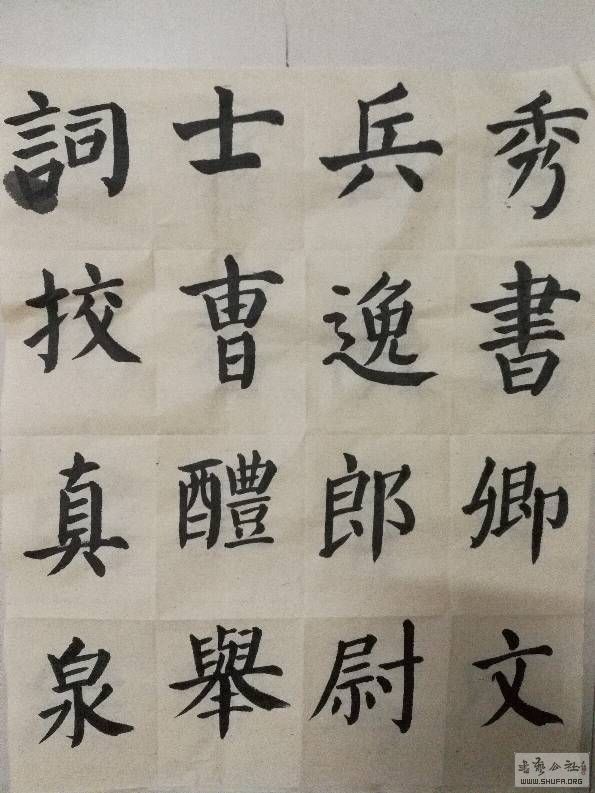 秀書卿文
兵逸郎尉
士曹醴舉
詞挍真泉
WWW.SHUFA.ORG